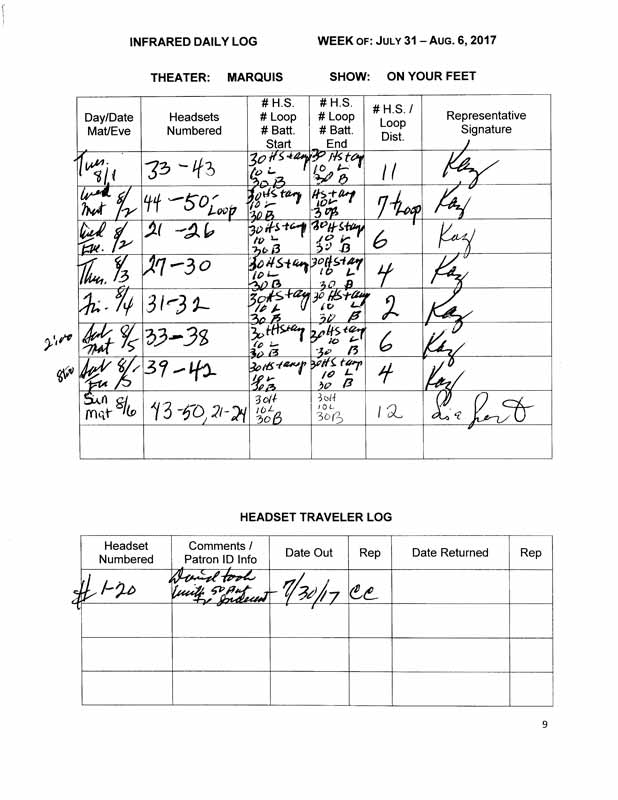 INFRARED DAILY LOG WEEK OF: JULY 31 – AUG. 6, 2017
THEATER: MARQUIS SHOW: ON YOUR FEET
Day/Date Mat/Eve Headsets Numbered # H.S. # Loop # Batt. Start # H.S. # Loop # Batt. End # H.S. / Loop Dist. Representative Signature
Tues. 8/1 33-43 30 HS 10 L 30 B 30 HS 10 L 30 B 11 Kaz
Wed Mat 8/2 44-50 Loop HS 10 L 30 B HS 10 L 30 B 7 + Loop Kaz
Wed Eve. 8/2 21-26 30 HS 10 L 30 B 30 HS 10 L 30 B 6 Kaz
Thu. 8/3 27-30 30 HS 10 L 30 B 30 HS 10 L 30 B 4 Kaz
Fri. 8/4 31-32 30 HS 10 L 30 B 30 HS 10 L 30 B 2 Kaz
2:00 Sat Mat 8/5 33-38 30 HS 10 L 30 B 30 HS 10 L 30 B 6 Kaz
800 Sat Eve 8/5 39-42 30 HS 10 L 30 B 30 HS 10 L 30 B 4 Kaz
Sun Mat 8/6 43-50, 21-24 30H 10L 30B 30H 10L 30B 12
HEADSET TRAVELER LOG
Headset Numbered Comments / Patron ID Info Date Out Rep Date Returned Rep
# 1-20 David took with 50 7/30/17 CC
9